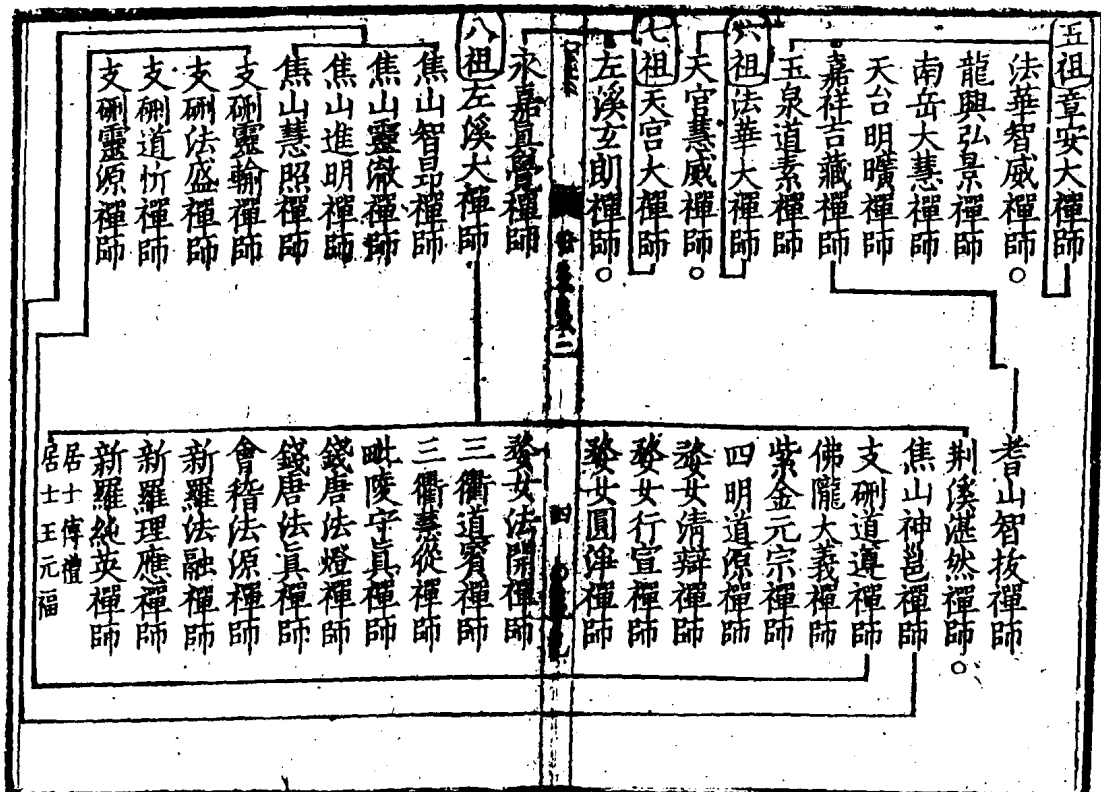 五祖章安大禪師
法華智威禪師○
龍興弘景禪師
南岳大慧禪師
天台明曠禪師
嘉祥吉藏禪師
玉泉道素禪師
六祖法華大禪師
天宮慧威禪師○
七祖天宮大禪師
左溪玄朗禪師○
永嘉眞覺禪師
八祖左溪大禪師
焦山智昂禪師
焦山靈澈禪師
焦山進明禪師
焦山慧照禪師
支硎靈輸禪師
支硎法盛禪師
支硎道忻禪師
支硎靈源禪師
耆山智拔禪師
荆溪湛然禪師○
焦山神邕禪師
支硎道遵禪師
佛隴大義禪師
紫金元宗禪師
四明道源禪師
婺女清辯禪師
婺女行宣禪師
婺女圓淨禪師
四
婺女法開禪師
三衢道賓禪師
三衢慧從禪師
毗陵守眞禪師
錢唐法燈禪師
錢唐法眞禪師
會稽法源禪師
新羅法融禪師
新羅理應禪師
新羅純英禪師
居士傅禮
居士王元福